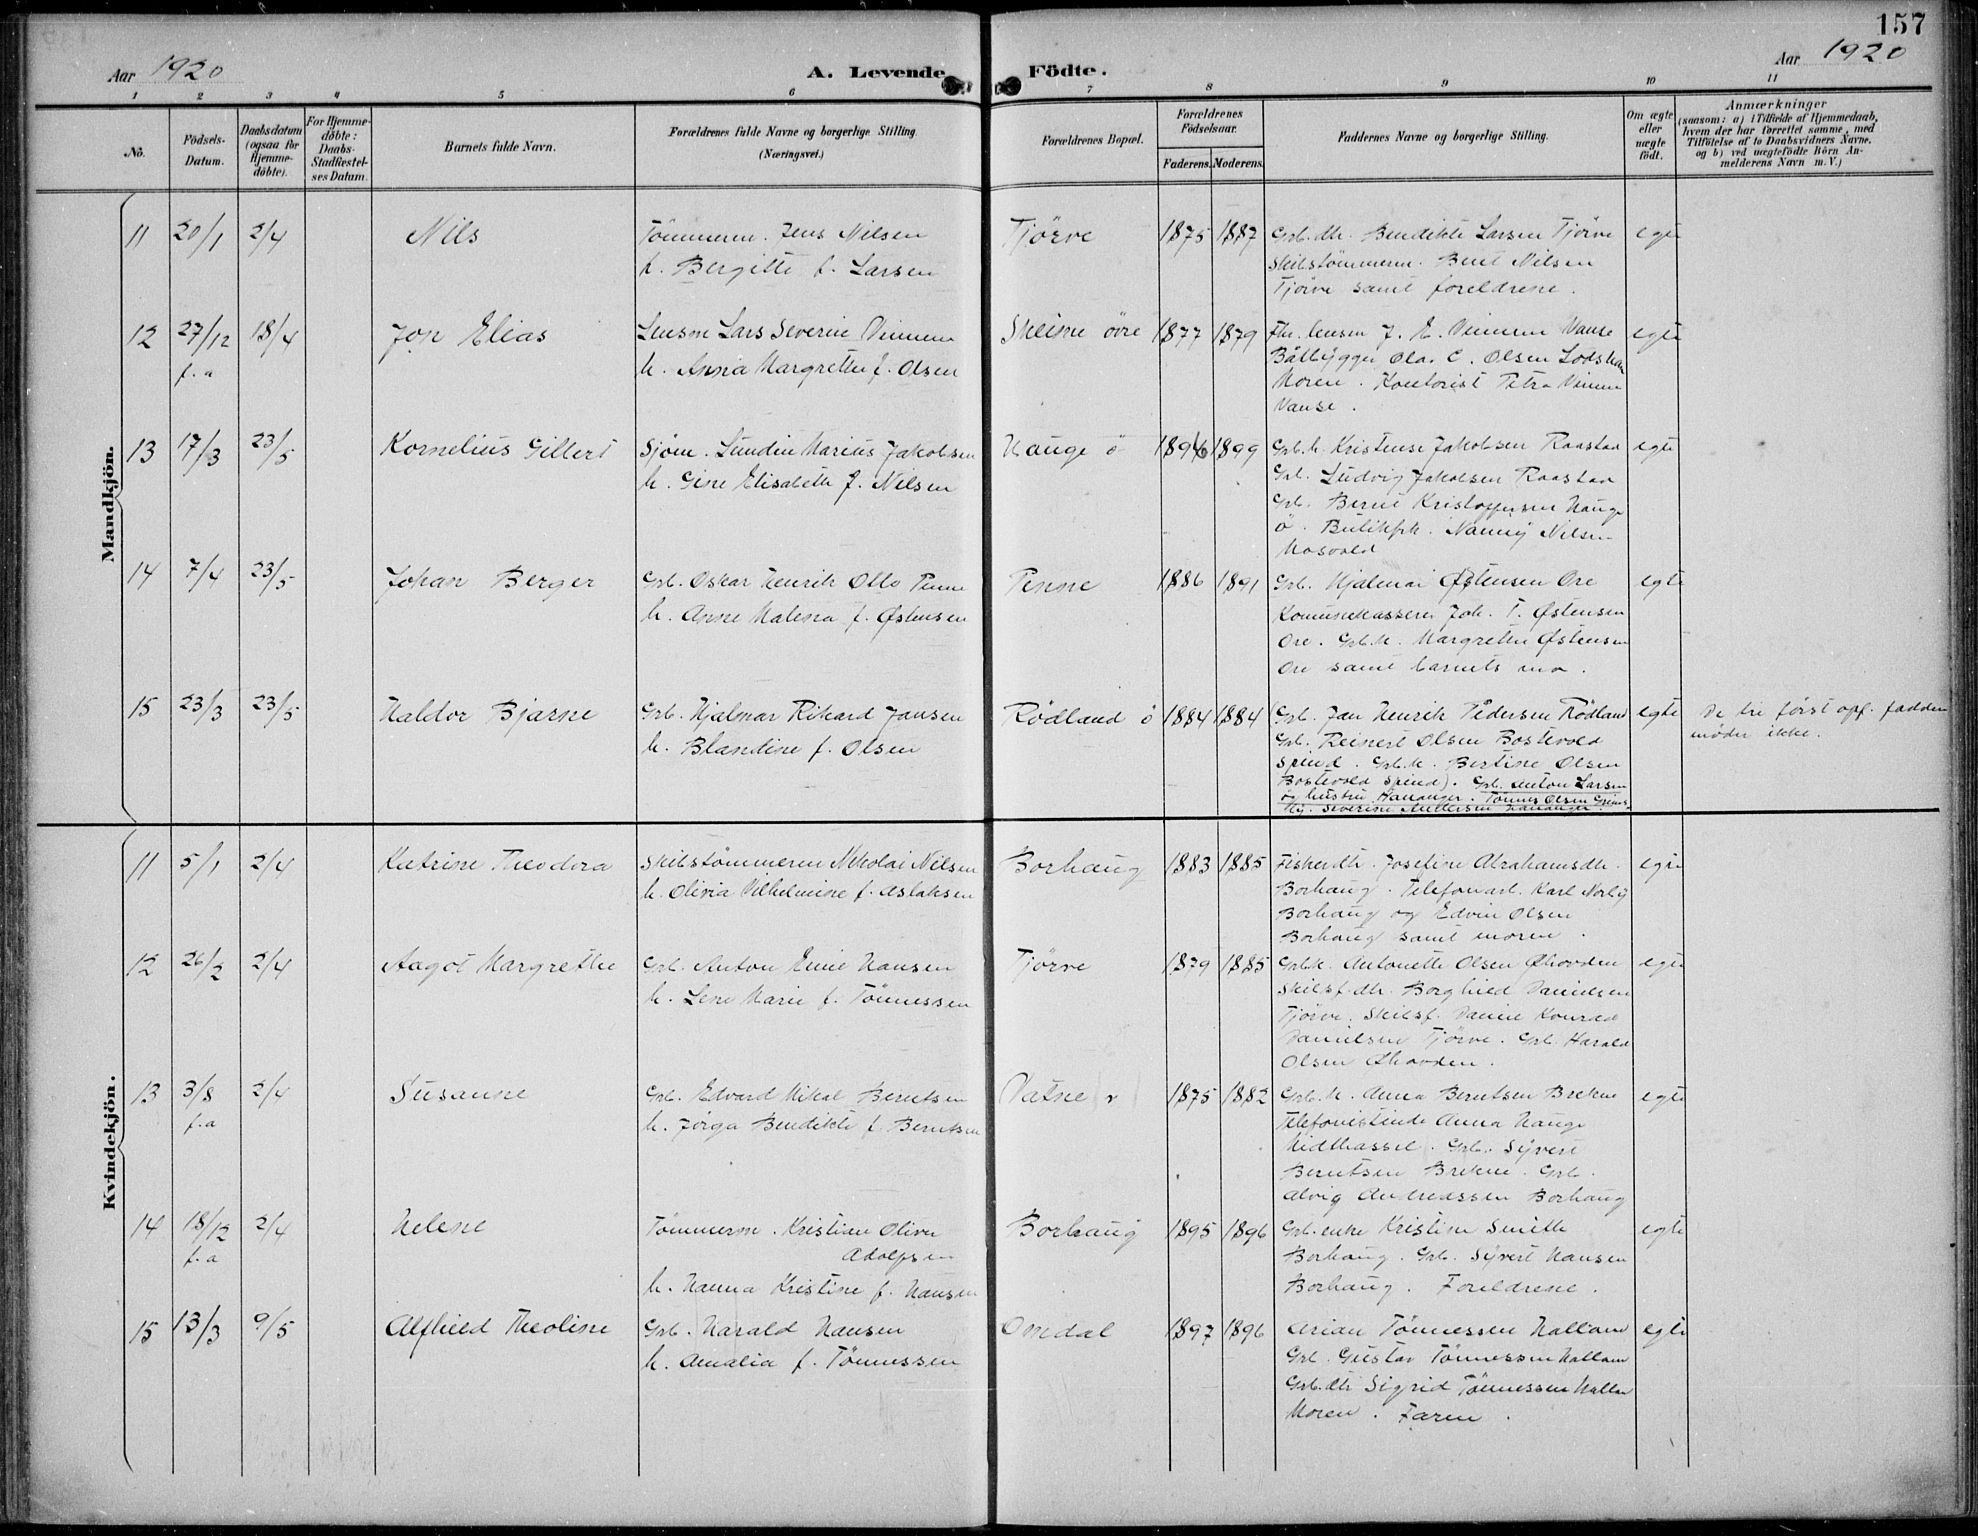 157
Aar 1920
A. Levende Födte.
Aar 1920
1 2 3 4 5 6 7 8 9 10 11
No.
Födsels-Datum.
Daabsdatum (ogsaa for Hjemme-döbte).
For Hjemme-döbte: Daabs-Stadfæstel-ses Datum.
Barnets fulde Navn.
Forældrenes fulde Navne og borgerlige Stilling. (Næringsvei.)
Forældrenes Bopæl.
Forældrenes Födselsaar.
Faderens. Moderens.
Faddernes Navne og borgerlige Stilling.
Om ægte eller uægte födt.
Anmærkninger
(saasom: a) i Tilfælde af Hjemmedaab, hvem der har forrettet samme, med Tilföielse af to Daabsvidners Navne, og b) ved uægtefödte Börn An-melderens Navn m. V.)
Mandkjön.
11 20/1 2/4 Nils
Tömmerm. Jens Nilsen
h. Bergitte f. Larsen
Tjörve 1875 1887
Grb. dtr. Bendikte Larsen Tjörve
Skibstömmerm. Bent Nilsen
Tjörve samt foreldrene.
egte
12 27/12 f.a 18/4 Jon Elias
Lensm Lars Severin Vinnem
h. Anna Margrethe f. Olsen
Skeime övre 1877 1879
Fhv. lensm J. E. Vinnem Vanse
Båtbygger Ola. C. Olsen Lodshavn
Moren. Kontorist Petra Vinnem
Vanse.
egte
13 17/3 23/5 Kornelius Gilbert
Sjöm. Lundin Marius Jakobsen
h. Gine Elisabeth f. Nilsen
Hauge ö 1896 1899
Grb. h. Kristense Jakobsen Raastad
Grb. Ludvig Jakobsen Raastad
Grb. Bernt Kristoffersen Hauge
ö. Butikfrk. Nanny Nilsen
Mosvold
egte
14 7/4 23/5 Johan Berger
Grb. Oskar Henrik Otto Penne
h. Anne Malena f. Østensen
Penne 1886 1891
Grb. Hjalmar Østensen Ore
Komunekasserer Joh. T. Østensen
Ore. Grb. h. Margrethe Østensen
Ore samt barnets mor.
egte
15 23/3 23/5 Haldor Bjarne
Grb. Hjalmar Rikard Jansen
h. Blandine f. Olsen
Rödland ö 1884 1884
Grb. Jan Henrik Pedersen Rödland
Grb. Reinert Olsen Bostevold
Spind. Grb. h. Bertine Olsen
Bostevold Spind). Grb. Anton Larsen
og hustru Hananger. Tönnes Olsen
Severine Andersen Hananger
egte
De tre först opf. faddere
möder ikke.
Kvindekjön.
11 5/1 2/4 Katrine Theodora
Skibstömmerm Nikolai Nilsen
h. Olivia Vilhelmine f. Aslaksen
Borhaug 1883 1885
Fiskerdtr. Josefine Abrahamsdtr.
Borhaug. Telefonarb. Karl Norby
Borhaug og Edvin Olsen
Borhaug samt moren.
egte
12 26/2 2/4 Aagot Margrethe
Grb. Anton Emil Hansen
h. Lene Marie f. Tönnessen
Tjörve 1879 1885
Grb.h. Antonette Olsen Øhovden
Skibsf. dtr. Borghild Danielsen
Tjörve. Skibsf. Daniel Konrad
Danielsen Tjörve. Grb. Harald
Olsen Øhovden.
egte
13 3/8 f.a 2/4 Susanne
Grb. Edvard Mikal Berntsen
h. Jörga Bendikte f. Berntsen
Vatne v 1875 1882
Grb. h. Anna Berntsen Brekne
Telefonistinde Anna Hauge
Midthassel. Grb. Syvert
Berntsen Brekne. Grb.
Alvig Andreassen Borhaug
egte
14 18/12 f.a 2/4 Helene
Tömmerm. Kristian Oliver
Adolfsen
h. Hanna Kristine f. Hansen
Borhaug 1895 1896
Grb. enke Kristine Smith
Borhaug. Grb. Syvert Hansen
Borhaug. Foreldrene.
egte
15 13/3 9/5 Alfhild Theoline
Grb. Harald Hansen
h. Amalia f. Tönnessen
Omdal 1897 1896
Arian Tönnessen Hallan
Grb. Gustav Tönnessen Hallan
Grb. dtr Sigrid Tönnessen Hallan
Moren. Faren.
egte